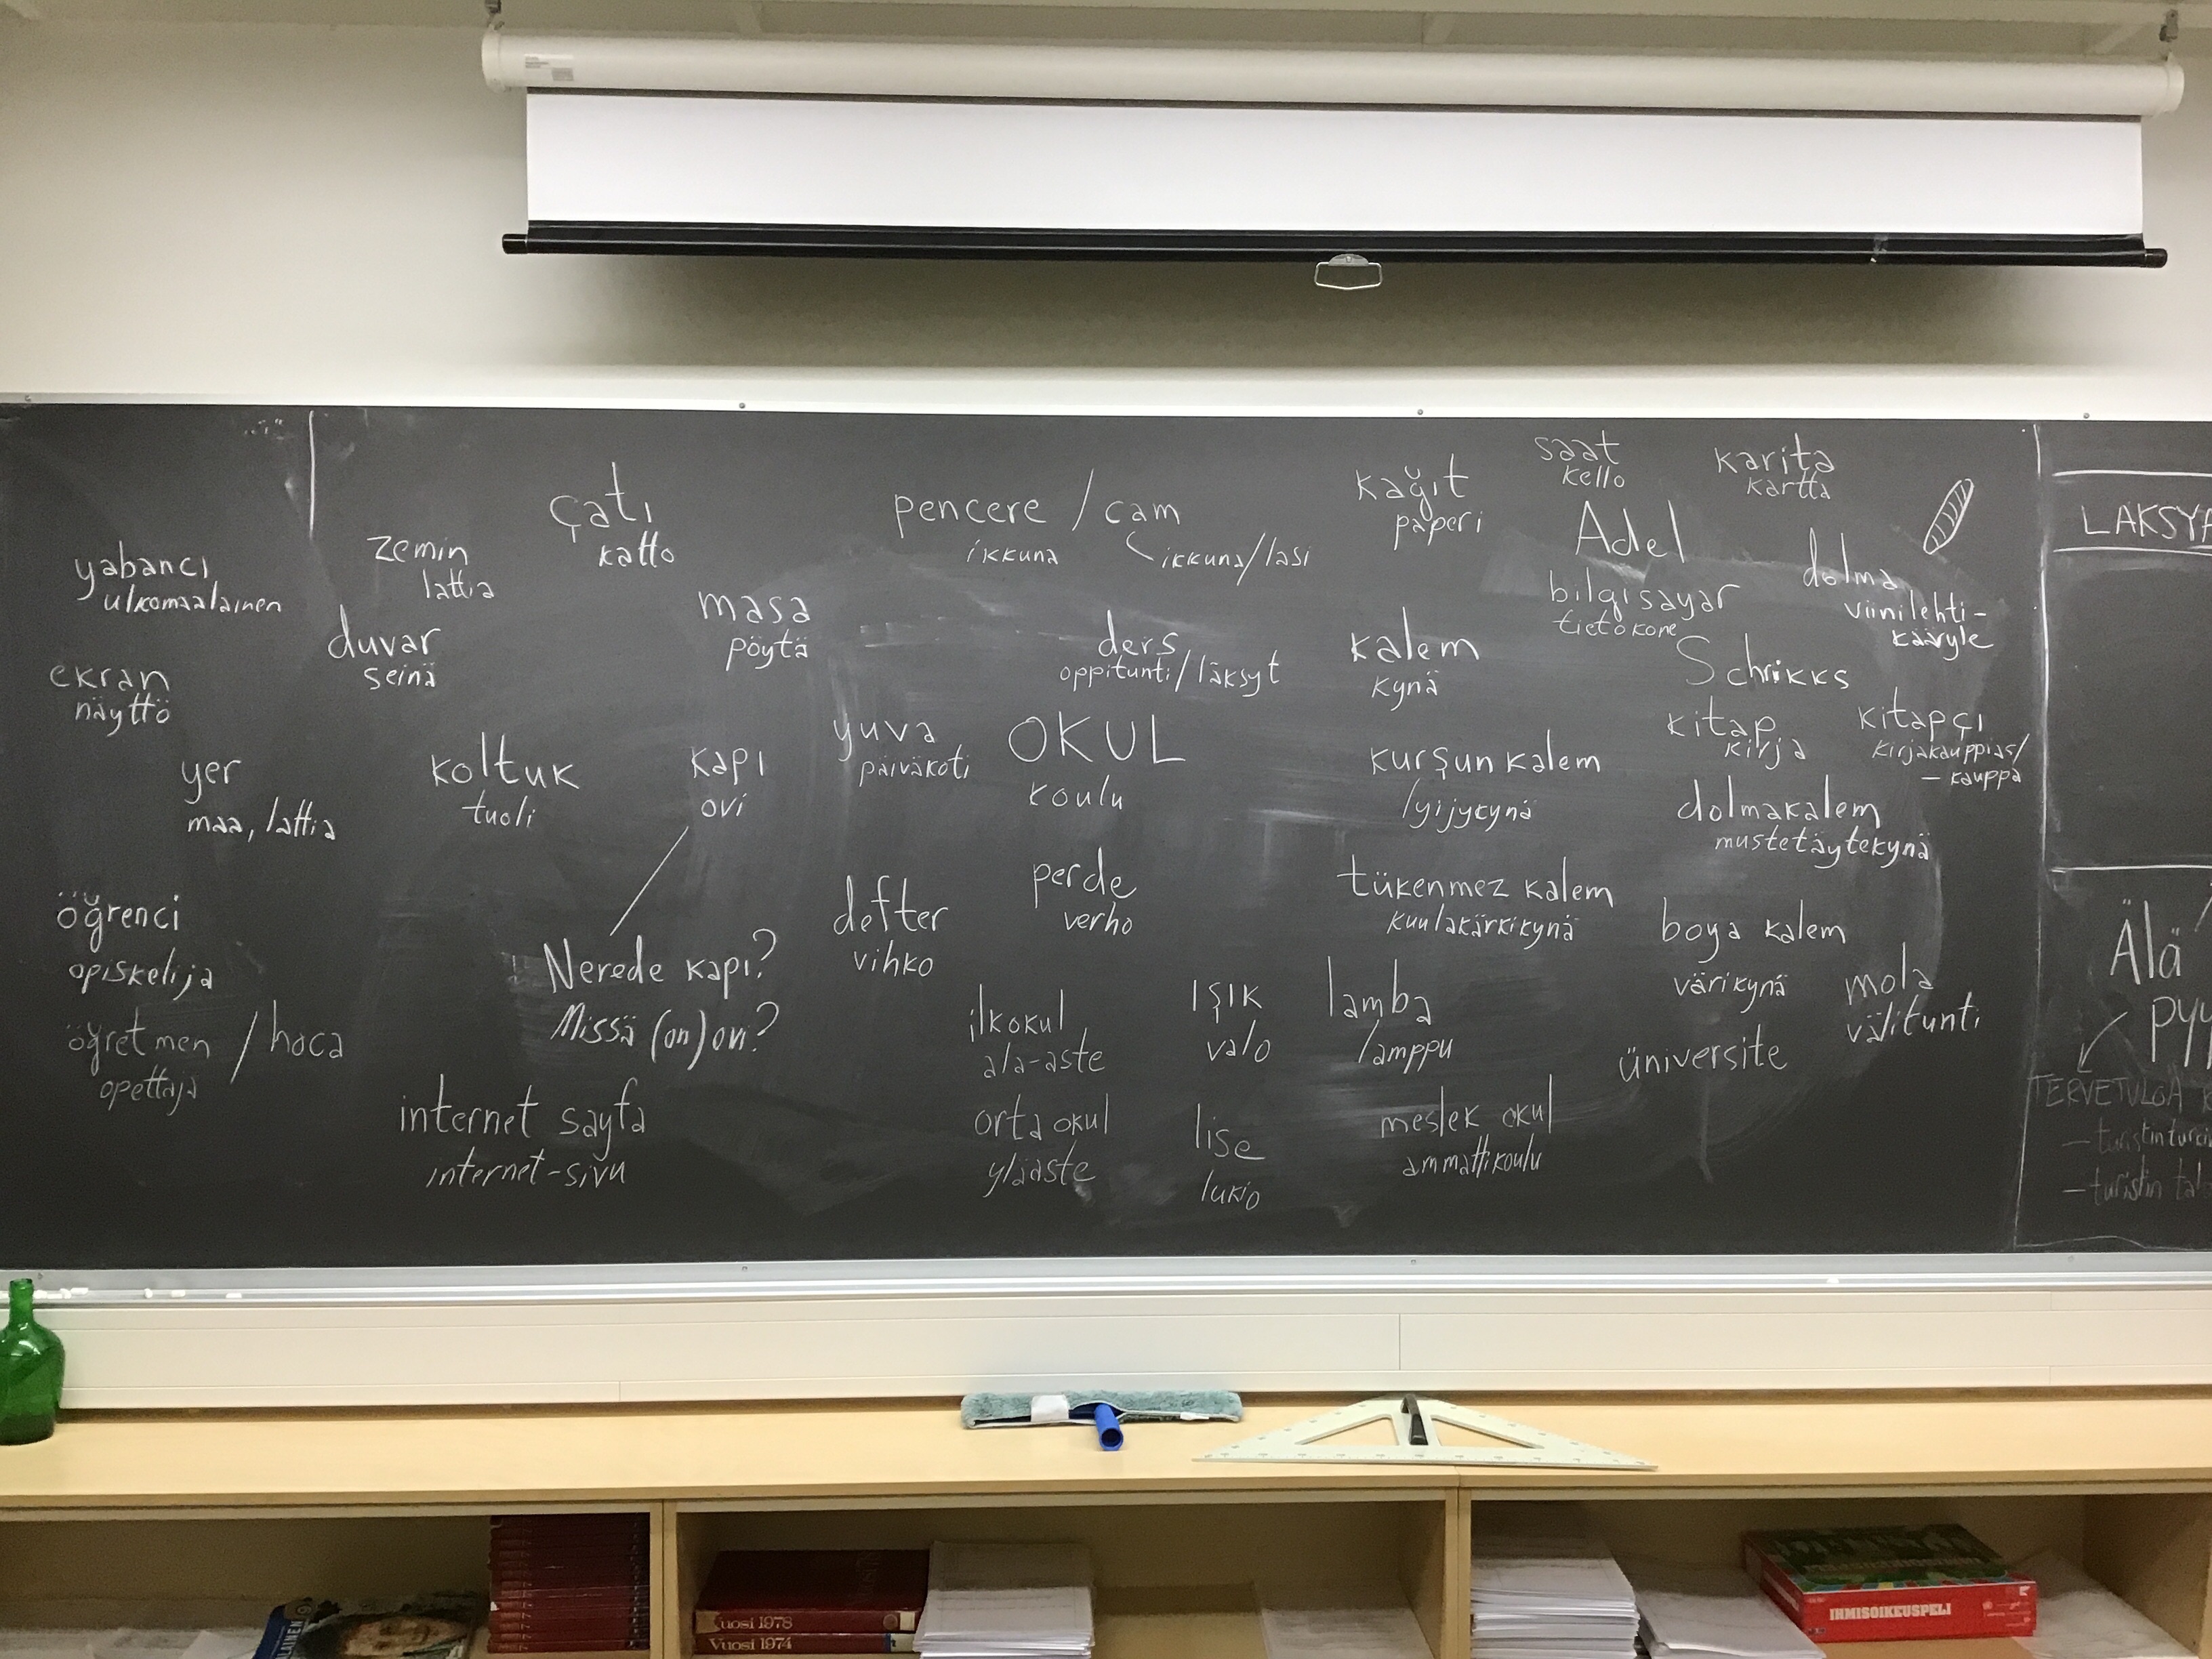 yabancı
ulkomaalainen
ekran
näyttö
yer
maa, lattia
öğrenci
opiskelija
öğretmen / hoca
opettaja
zemin
lattia
duvar
seinä
çatı
katto
masa
pöytä
koltuk
tuoli
kapı
ovi
Nerede kapı?
Missä (on) ovi?
internet sayfa
internet-sivu
pencere / cam
ikkuna
ikkuna/lasi
ders
oppitunti/läksyt
yuva
päiväkoti
OKUL
koulu
defter
vihko
perde
verho
ilkokul
ala-aste
orta okul
yläaste
ışık
valo
lise
lukio
kağıt
paperi
kalem
kynä
kurşun kalem
lyijykynä
tükenmez kalem
kuulakärkikynä
lamba
lamppu
meslek okul
ammattikoulu
saat
kello
karita
kartta
Adel
bilgisayar
tietokone
dolma
viinilehti-
kääryle
Schrikks
kitap
kirja
kitapçı
kirjakauppias/
– kauppa
dolmakalem
mustetäytekynä
boya kalem
värikynä
mola
välitunti
üniversite
LÄKSY
Älä
TERVETULOA
– turistin
– turistin
Vuosi 1978
Vuosi 1974
IHMISOIKEUSPELI